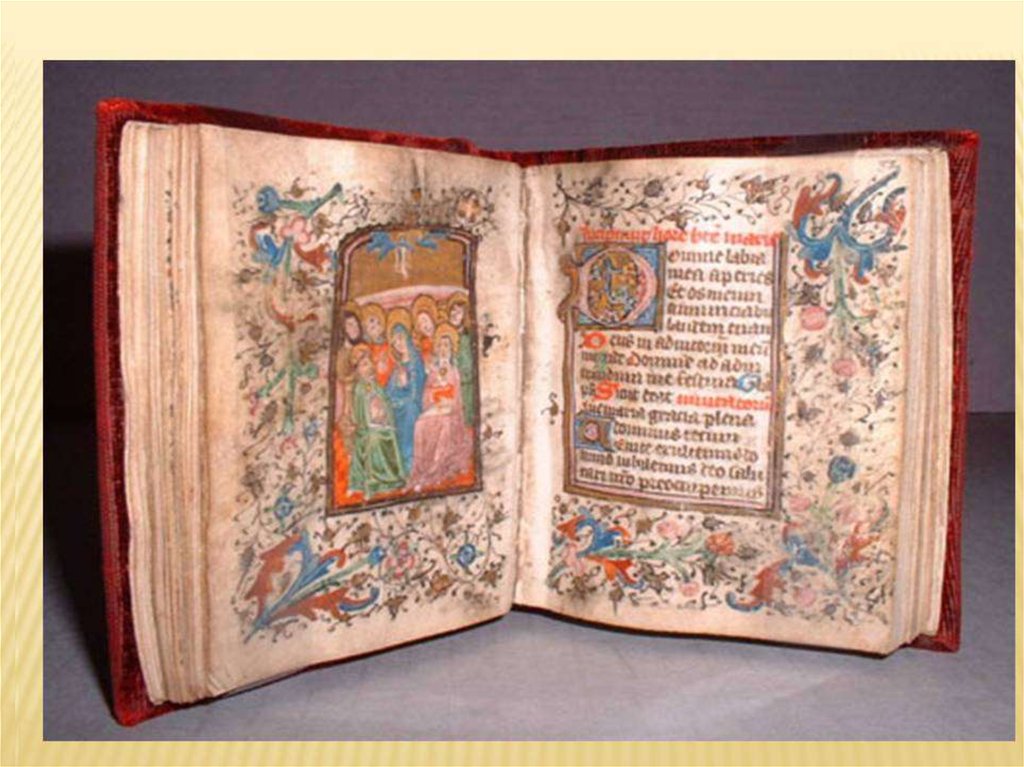 hore bte marie
Domine labia
mea aperies
Et os meum
annunciabit
laudem tuam
Deus in adiutorium meu
intende Domine ad adiu
uandum me festina
Sicut erat
aue maria gracia plena
dominus tecum
Uenite exultemus do
mino iubilemus deo salu
tari nro preoccupemus